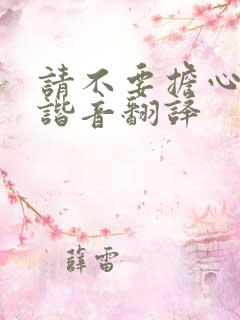 請不要擔心
諧音翻譯
薛雷